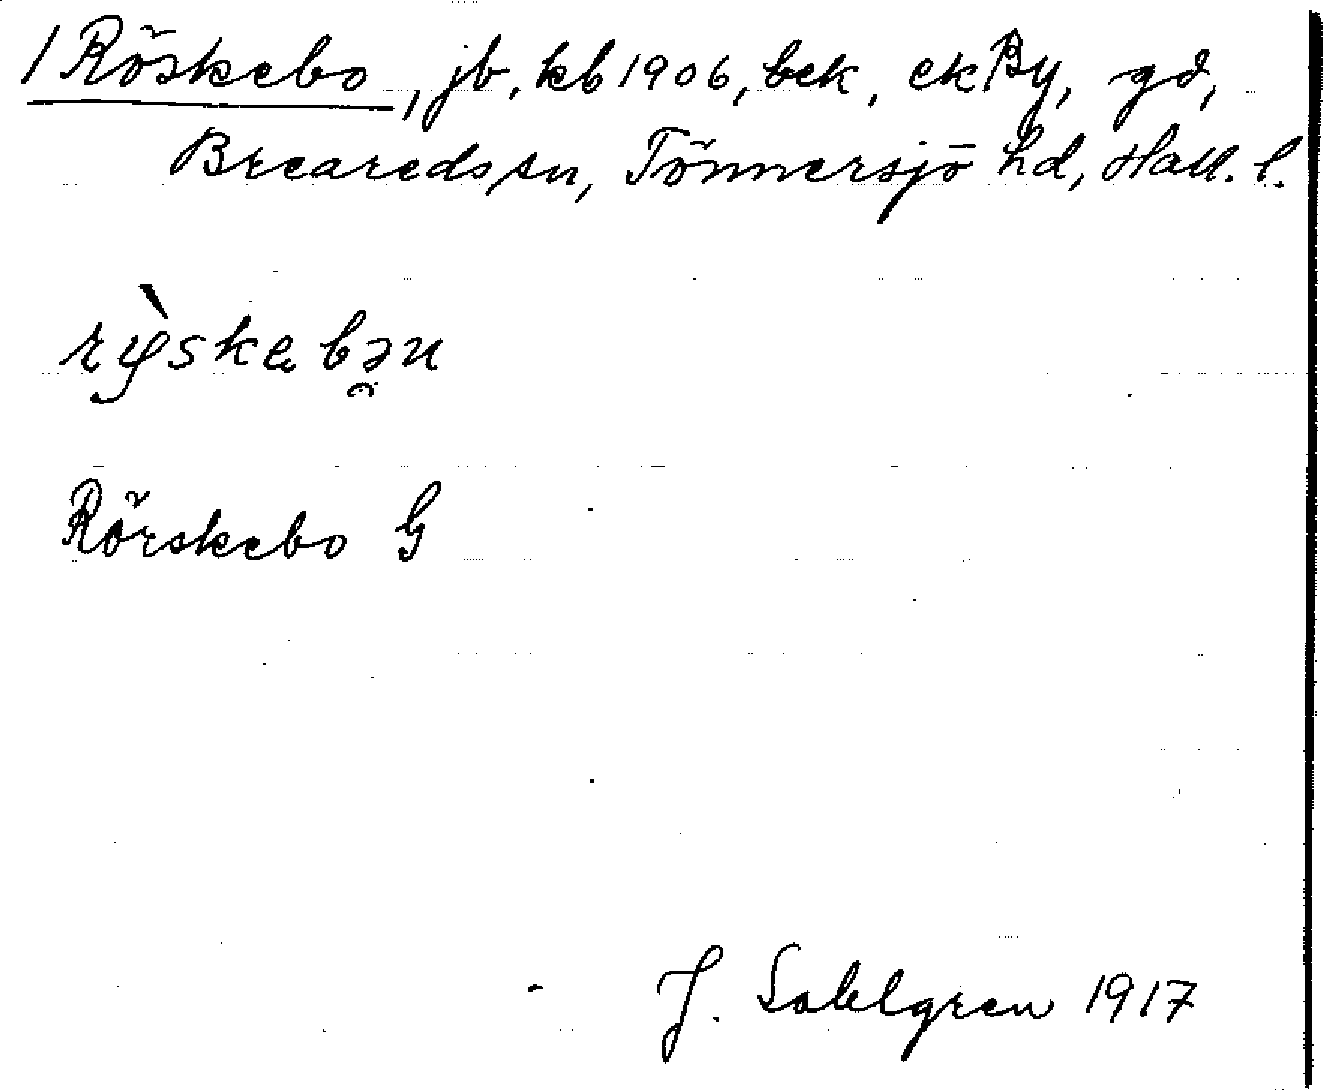 / Röskebo, jb, kb 1906, bek, ekBy, gd,
Breareds sn, Tönnersjö hd, Hall. l.
Rörskebo G
J. Sahlgren 1917